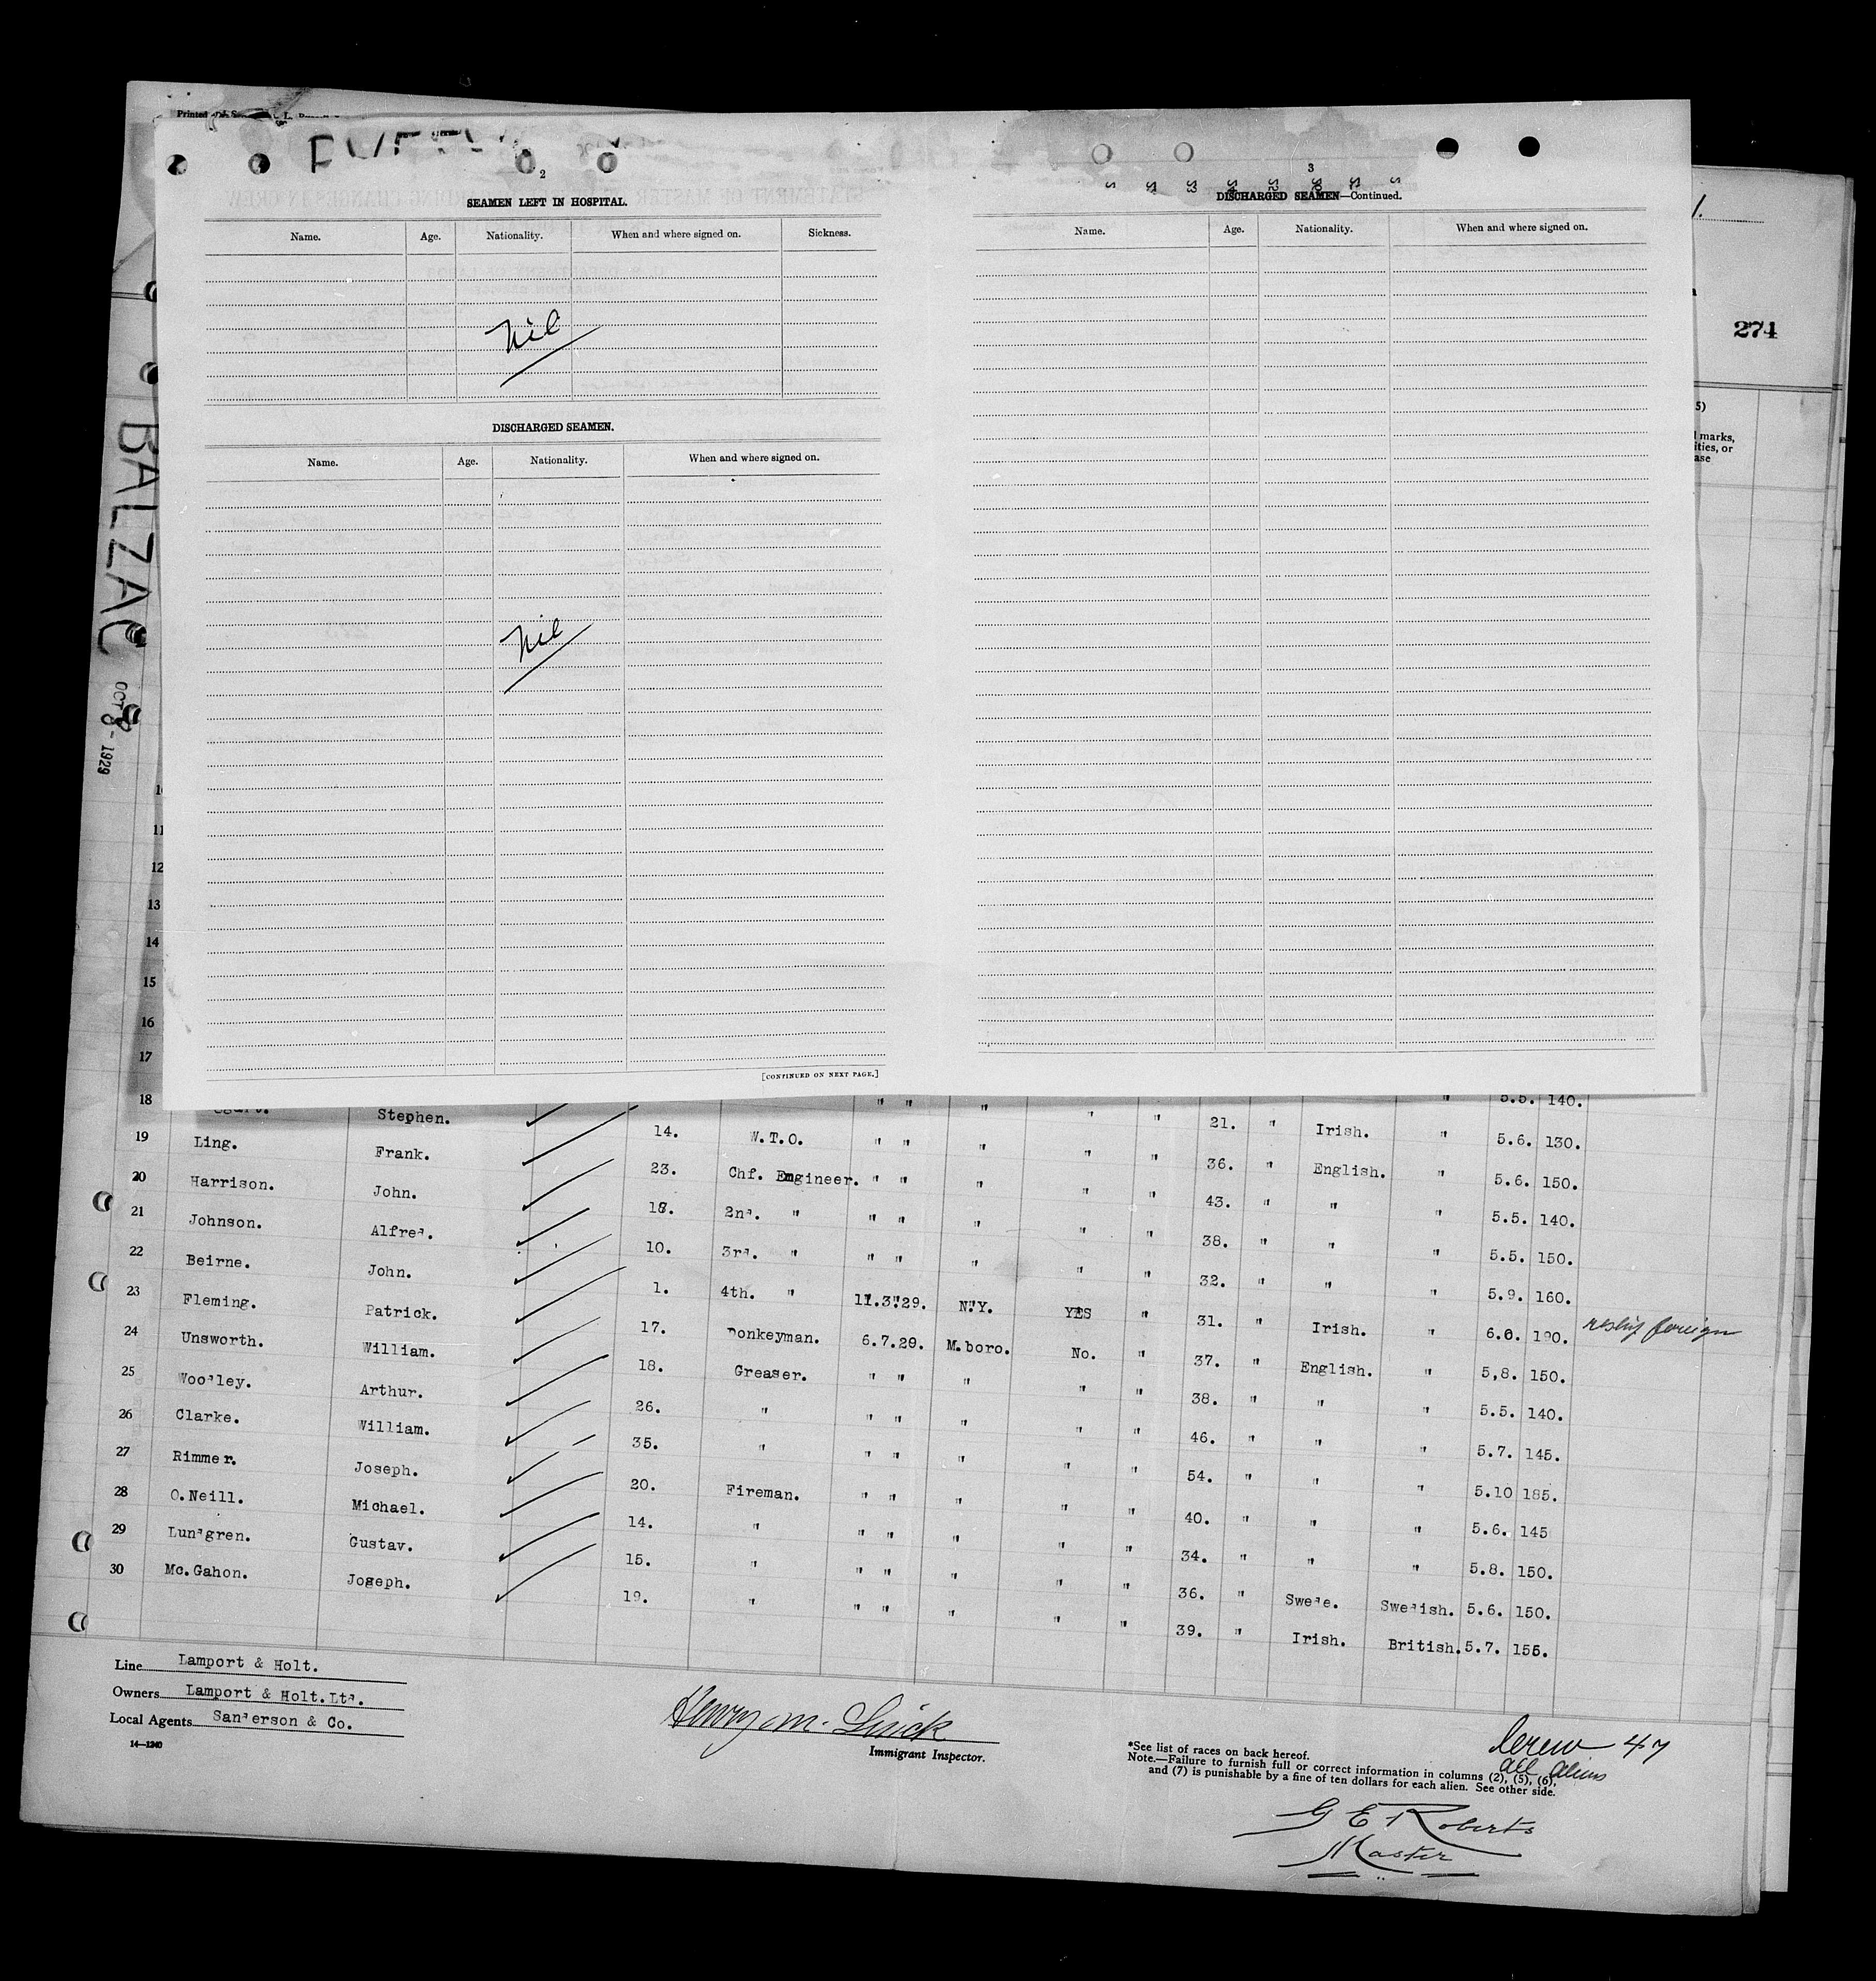 2
SEAMEN LEFT IN HOSPITAL.
Name. Age. Nationality. When and where signed on. Sickness.
Nil
DISCHARGED SEAMEN.
Name. Age. Nationality. When and where signed on.
Nil
[CONTINUED ON NEXT PAGE.]
3
DISCHARGED SEAMEN—Continued.
Name. Age. Nationality. When and where signed on.
274
5)
marks,
ities, or
ase
BALZAC
OCT 8 - 1929
10
11
12
13
14
15
16 " 5.5. 140.
17 " " " " " 21. " Irish. " 5.6. 130.
18 Stephen. 14. W.T.O. " " " " " 36. " English. " 5.6. 150.
19 Ling. Frank. 23. Chf. Engineer. " " " " " 43. " " " 5.5. 140.
20 Harrison. John. 18. 2nd. " " " " " " 38. " " " 5.5. 150.
21 Johnson. Alfred. 10. 3rd. " " " " " " 32. " " " 5.9. 160.
22 Beirne. John. 1. 4th. " 11.3.29. N.Y. YES " 31. " Irish. " 6.0. 190. reship foreign
23 Fleming. Patrick. 17. Donkeyman. 6.7.29. M.boro. No. " 37. " English. " 5,8. 150.
24 Unsworth. William. 18. Greaser. " " " " " 38. " " " 5.5. 140.
25 Woodley. Arthur. 26. " " " " " " 46. " " " 5.7. 145.
26 Clarke. William. 35. " " " " " " 54. " " " 5.10 185.
27 Rimmer. Joseph. 20. Fireman. " " " " " 40. " " " 5.6. 145
28 O.Neill. Michael. 14. " " " " " " 34. " " " 5.8. 150.
29 Lundgren. Gustav. 15. " " " " " " 36. " Swede. Swedish. 5.6. 150.
30 Mc.Gahon. Joseph. 19. " " " " " " 39. " Irish. British. 5.7. 155.
Line Lamport & Holt.
Owners Lamport & Holt.Ltd.
Local Agents Sanderson & Co.
14—1240
Immigrant Inspector.
Crew 47
all aliens
*See list of races on back hereof.
Note.—Failure to furnish full or correct information in columns (2), (5), (6),
and (7) is punishable by a fine of ten dollars for each alien. See other side.
G E Roberts
Master